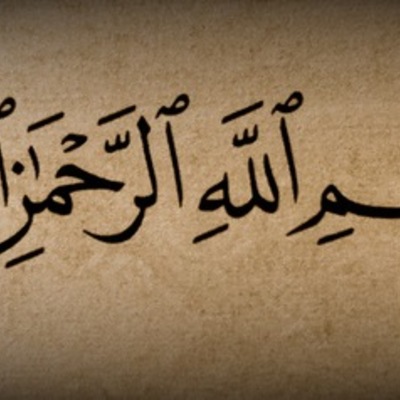 ـمِ ٱللَّهِ ٱلرَّحْمَٰنِ ٱ